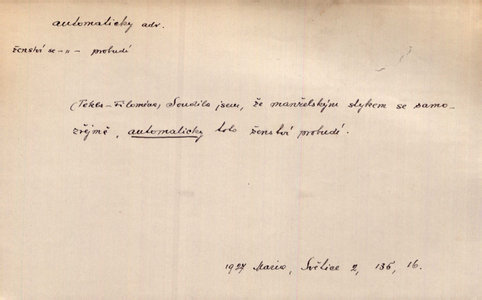 automaticky adv.
ženství se -"- probudí
(Tekla-Filoména) Soudila jsem, že manželským stykem se samo-
zřejmě, automaticky toto ženství probudí.
1927 Maria, Světice 2, 136, 16.